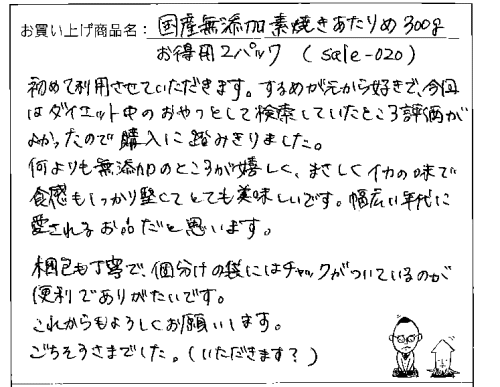 お買い上げ商品名： 国産無添加素焼きあたりめ300g
お得用2パック (sale-020)
初めて利用させていただきます。するめが元から好きで、今回
はダイエット中のおやつとして検索していたところ評価が
よかったので購入に踏みきりました。
何よりも無添加のところが嬉しく、まさしくイカの味で
食感もしっかり堅くてとても美味しいです。幅広い年代に
愛されるお品だと思います。
梱包も丁寧で、個分けの袋にはチャックがついているのが
便利でありがたいです。
これからもよろしくお願いします。
ごちそうさまでした。(いただきます？)